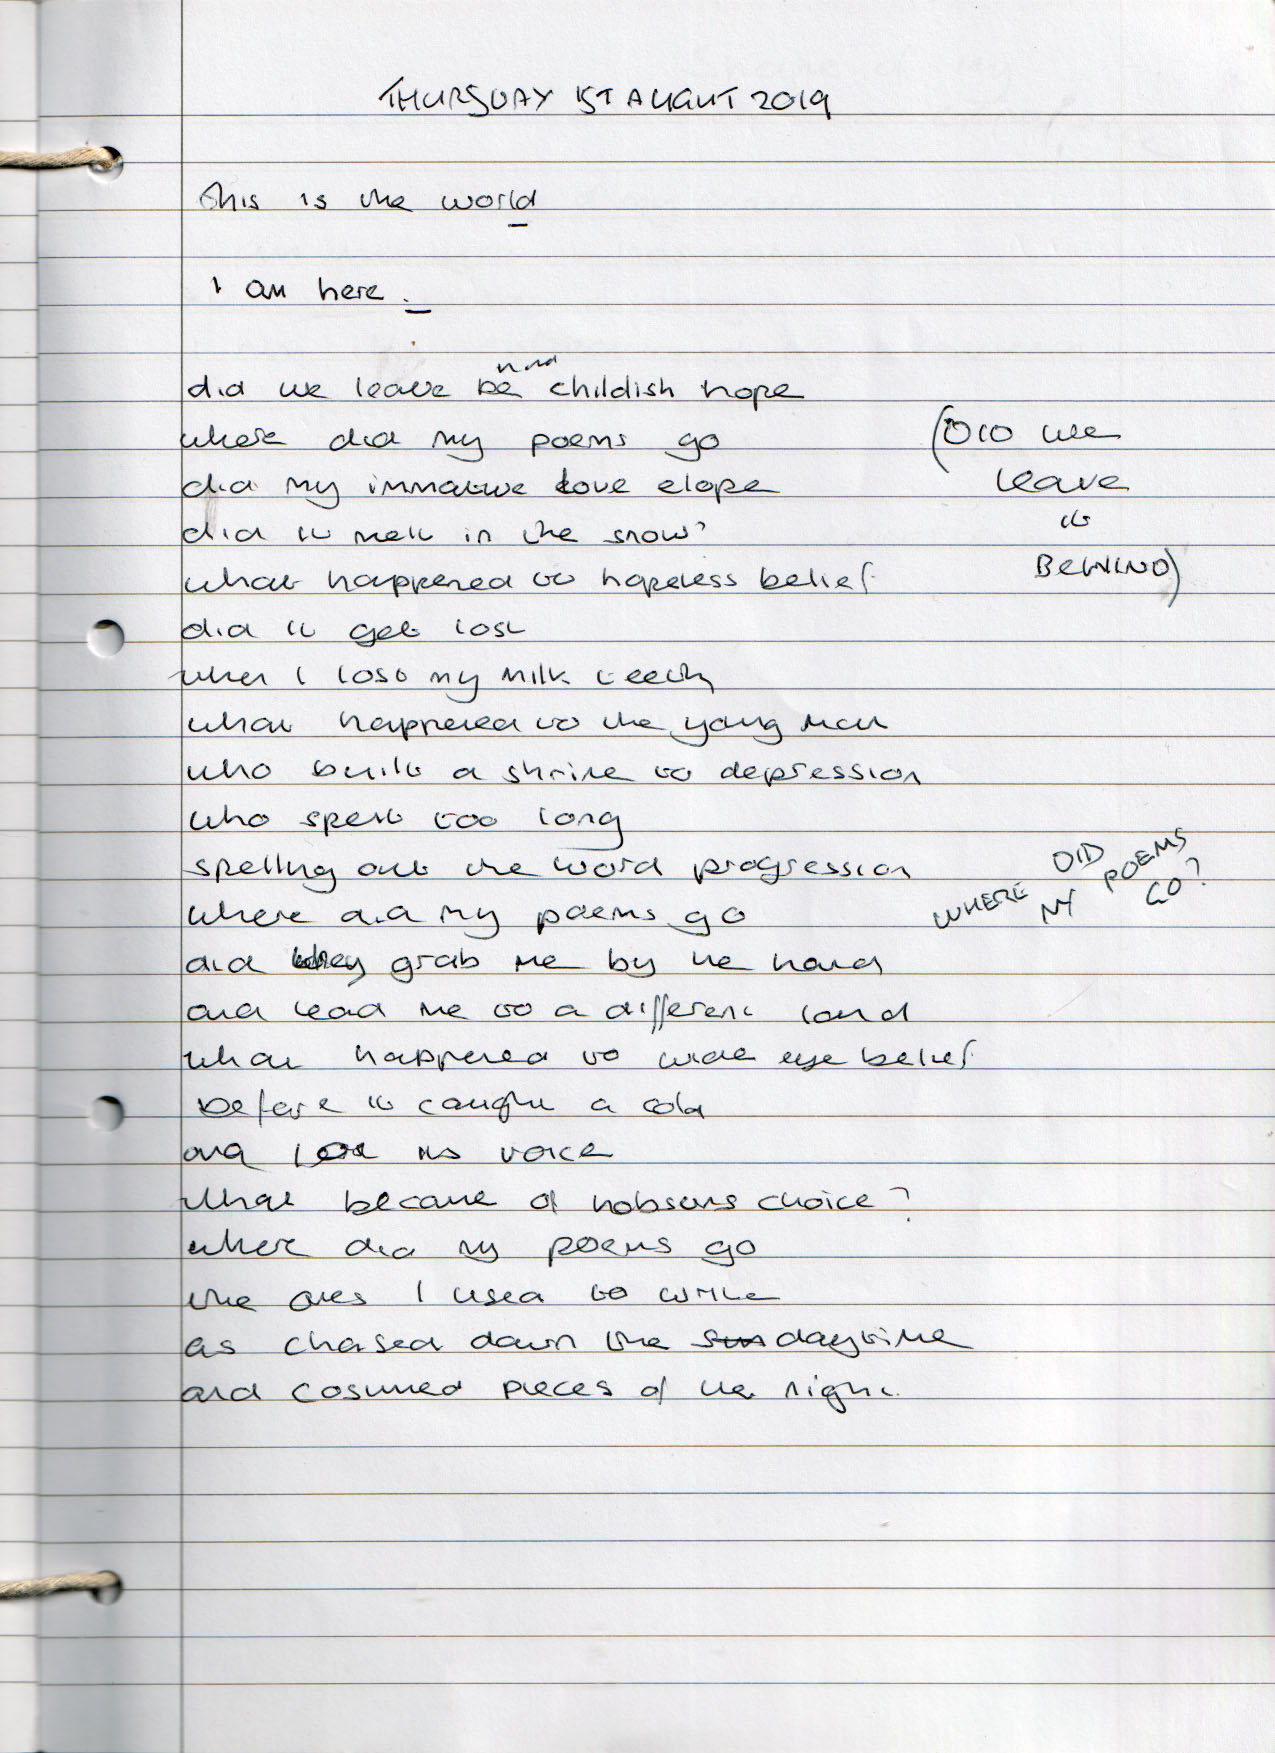 THURSDAY 1ST AUGUT 2019
this is the world
I am here.
did we leave behind childish hope
where did my poems go
(DID WE
LEAVE
it
BEHIND)
did my immature love elope
did it melt in the snow?
what happened to hopeless belief
did it get lost
when I lost my milk teeth
what happened to the young man
who built a shrine to depression
who spent too long
spelling out the word progression
WHERE DID MY POEMS GO?
where did my poems go
did they grab me by the hand
and lead me to a different land
what happened to wide eye belief
before it caught a cold
and lost its voice
what became of hobsons choice?
where did my poems go
the ones I used to write
as chased down the sun daytime
and cosumed pieces of the night.